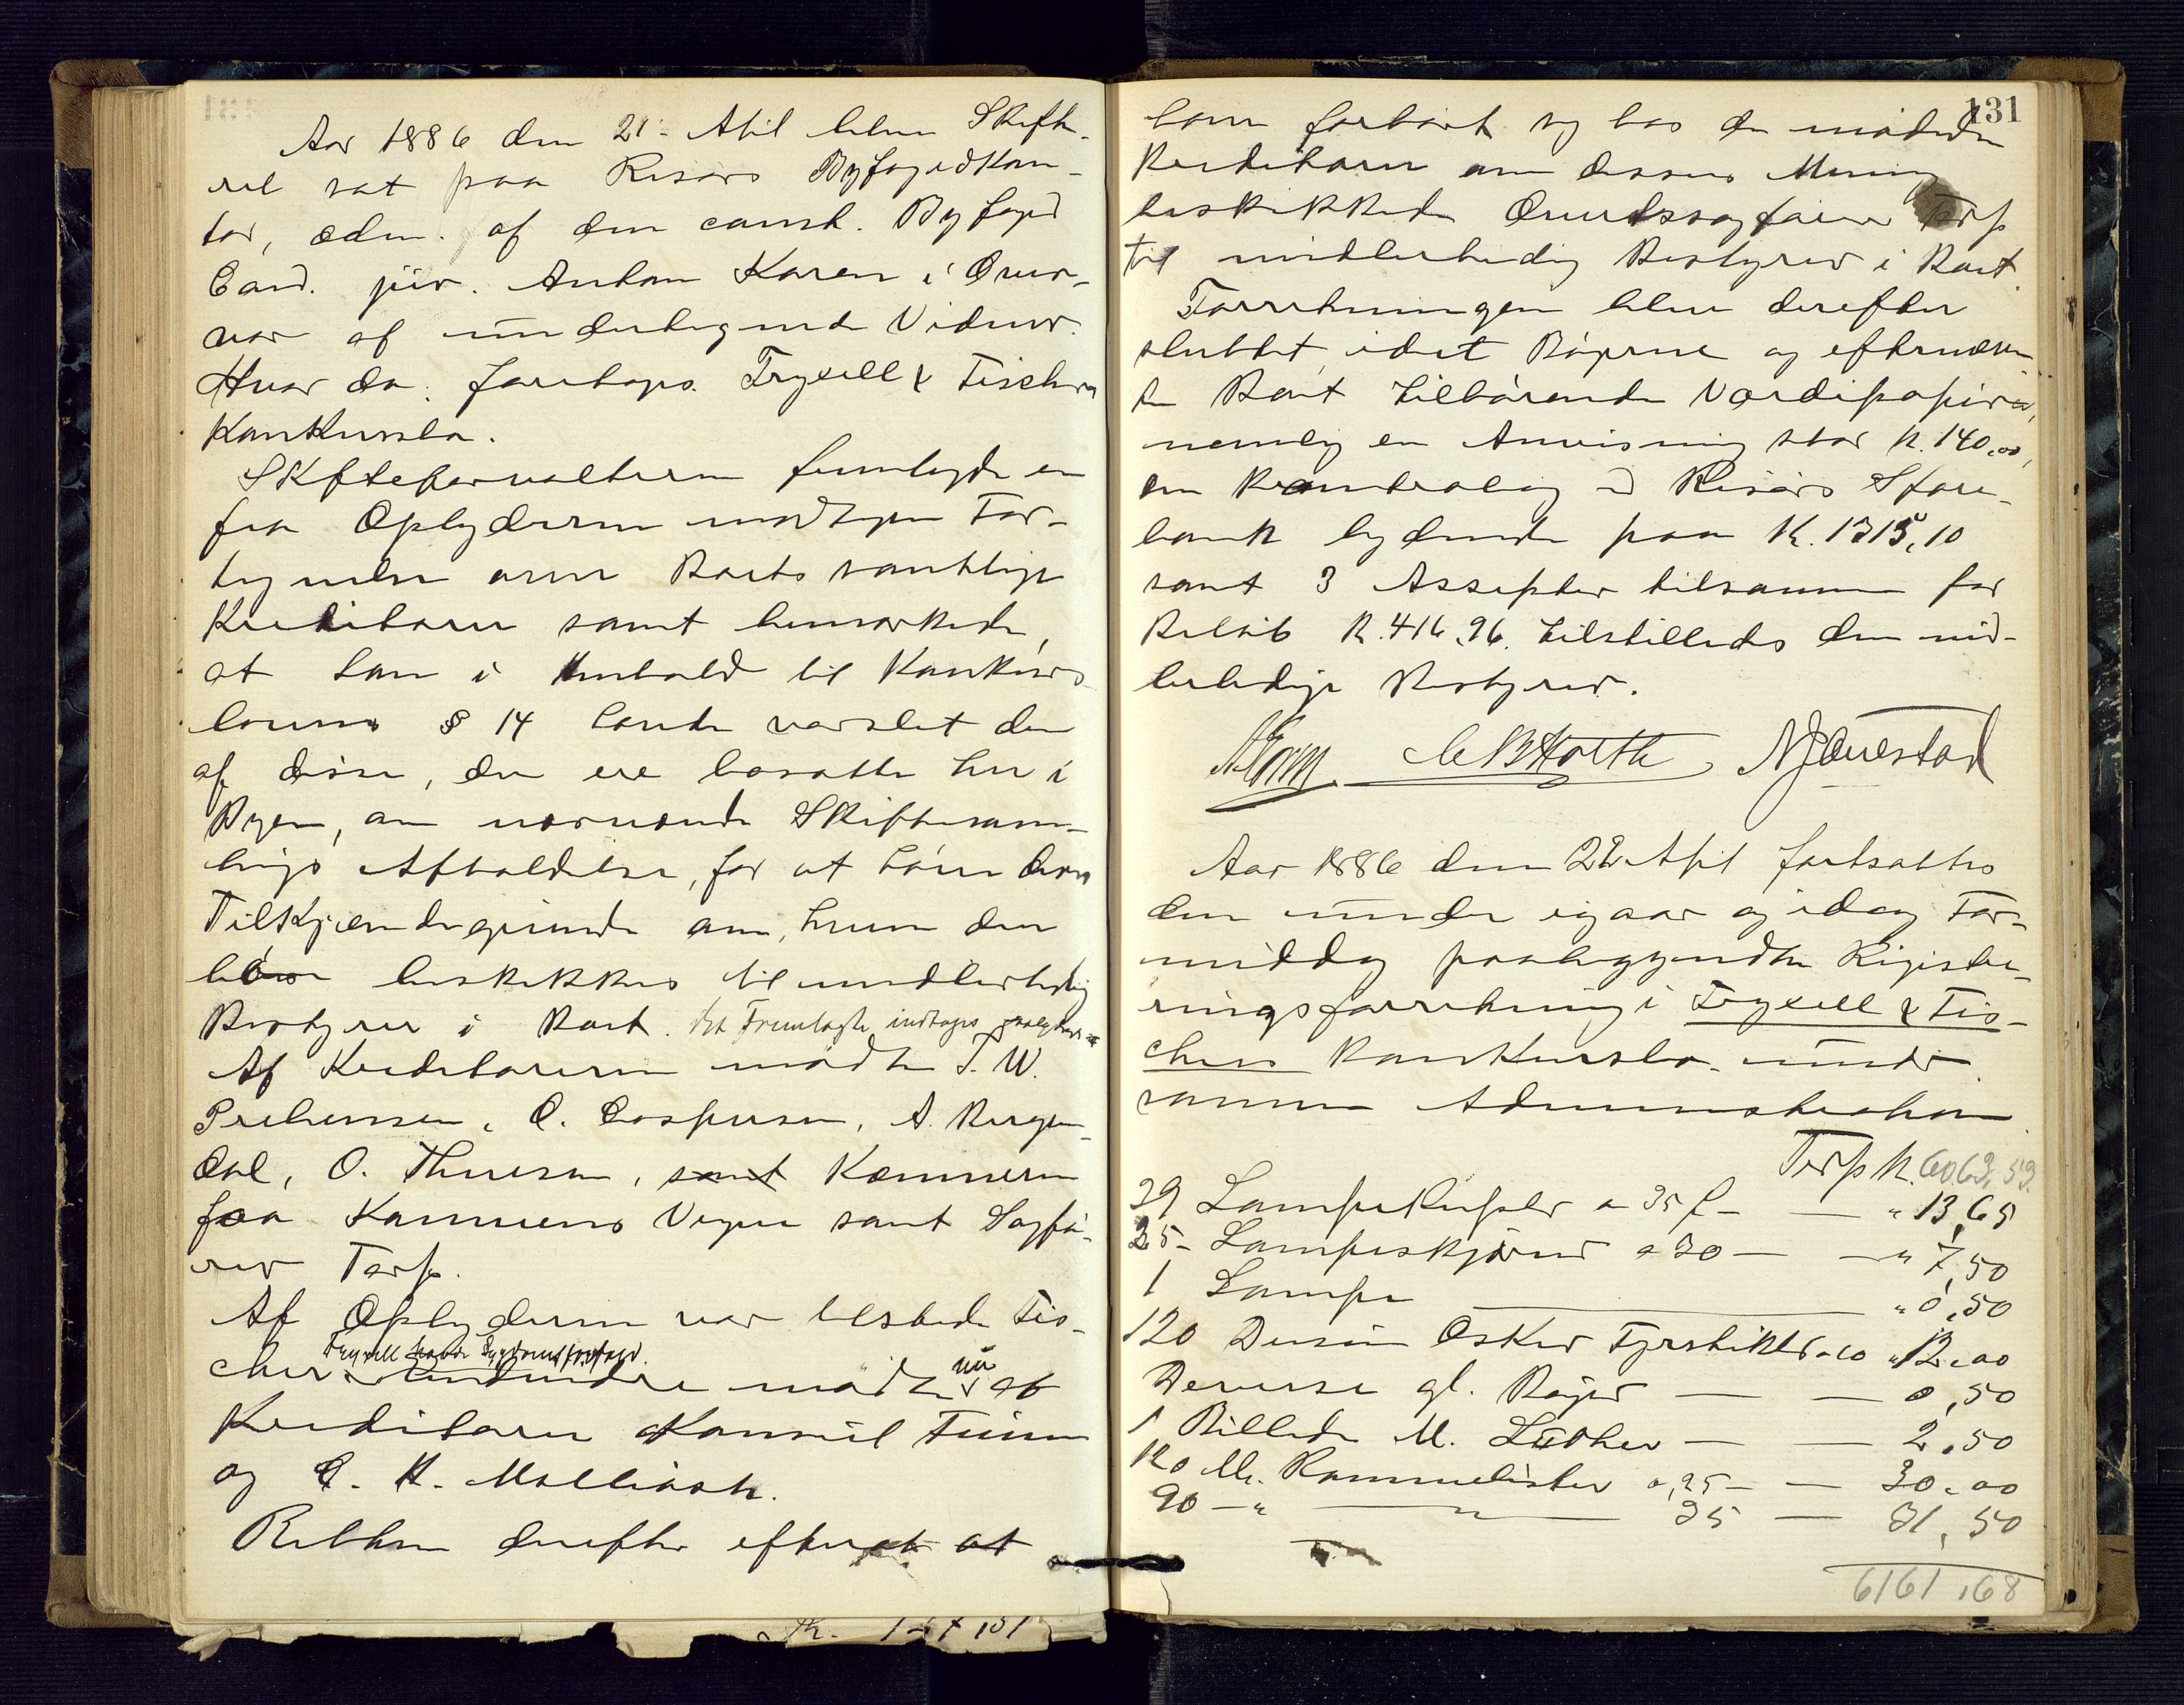 Aar 1886 den 21. April blev Skifte-
ret sat paa Risørs Byfogedkon-
tor, adm. af den const. Byfoged
Cand. jur. Anton Karen i Over-
vær af undertegnede Vidner.
Hvor da foretoges Fryxell & Fischers
Konkursbo.
Skifteforvalteren fremlagde en
fra Opbyderne modtagen For-
tegnelse over Boets samtlige
Kreditorer samt bemærkede,
at han i Henhold til Konkurs-
lovens § 14 havde varslet dem
af disse, der ere bosatte her i
Byen, om nærværende Skiftesam-
lings Afholdelse, for at høre deres
Tilkjendegivende om, hvem der
bør beskikkes til midlertidig
Bestyrer i Boet. Det Fremlagte indtages
Af Kreditorerne mødte T. W.
Prebensen, C. Caspersen, A. Bergen-
dal, O. Thuesen, samt Kæmneren
paa Kæmnerens Vegne samt Sagfø-
rer Terp.
Af Opbyderne var tilstede Fis-
cher. Fryxell havde Sygdomsforfald.
mødte nu af
Kreditorer Konsul Finne
og C. H.
Retten derefter efter at
131
have forhørt sig hos de mødende
Kreditorer om disses Mening
beskikkede Overretssagfører Terp
til midlertidig Bestyrer i Boet.
Forretningen blev derefter
sluttet idet Bøgerne og efternævn-
te Boet tilhørende Værdipapirer,
nemlig en Anvisning stor K. 140.00,
en Kontrabog m/ Risørs Spare-
bank lydende paa K. 1315,10
samt 3 Assepter tilsammen for
Beløb K. 416.96. tilstilledes den mid-
lertidige Bestyrer.
Aar 1886 den 22 April fortsattes
den under igaar og idag For-
middag paabegyndte Registe-
ringsforretning i Fryxell & Fis-
chers Konkursbo under
samme Administration.
Tersp K. 6063,53.
39 Lampekupler a 35 f - — " 13,65
25 - Lampeskjærme a 30 — — " 7,50
1 Lampe — " 0,50
120 Dusin Æsker Fyrstikker a 10 " 12.00
Diverse gl. Bøger — — 0,50
1 Billede M. Luther — — 2.50
120 M. Rammelister a ,25 — — 30.00
90 — " — " — 35 — 31,50
6161,68